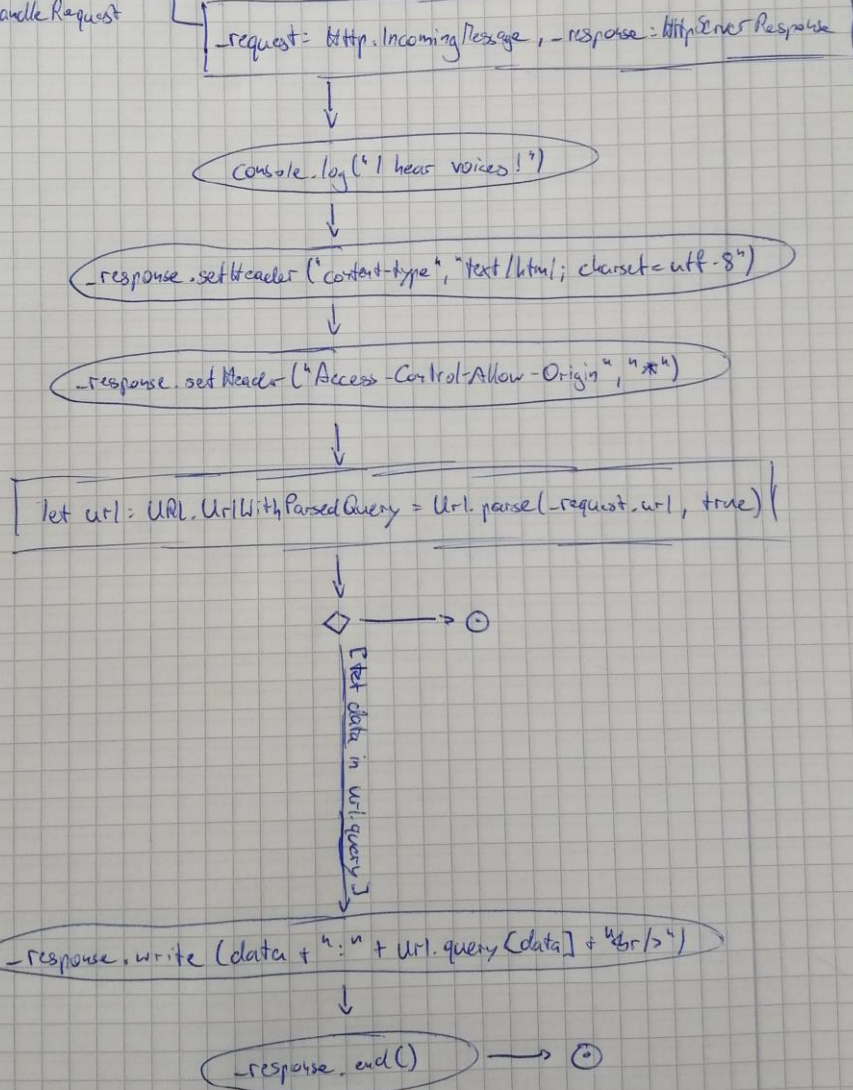 andleRequest
_request: Http.IncomingMessage, _response: HttpServerResponse
console.log("I hear voices!")
_response.setHeader("content-type", "text/html; charset=utf-8")
_response.setHeader("Access-Control-Allow-Origin", "*")
let url: URL.UrlWithParsedQuery = Url.parse(_request.url, true)
[let data in url.query]
_response.write(data + ":" + url.query[data] + "<br/>")
_response.end()